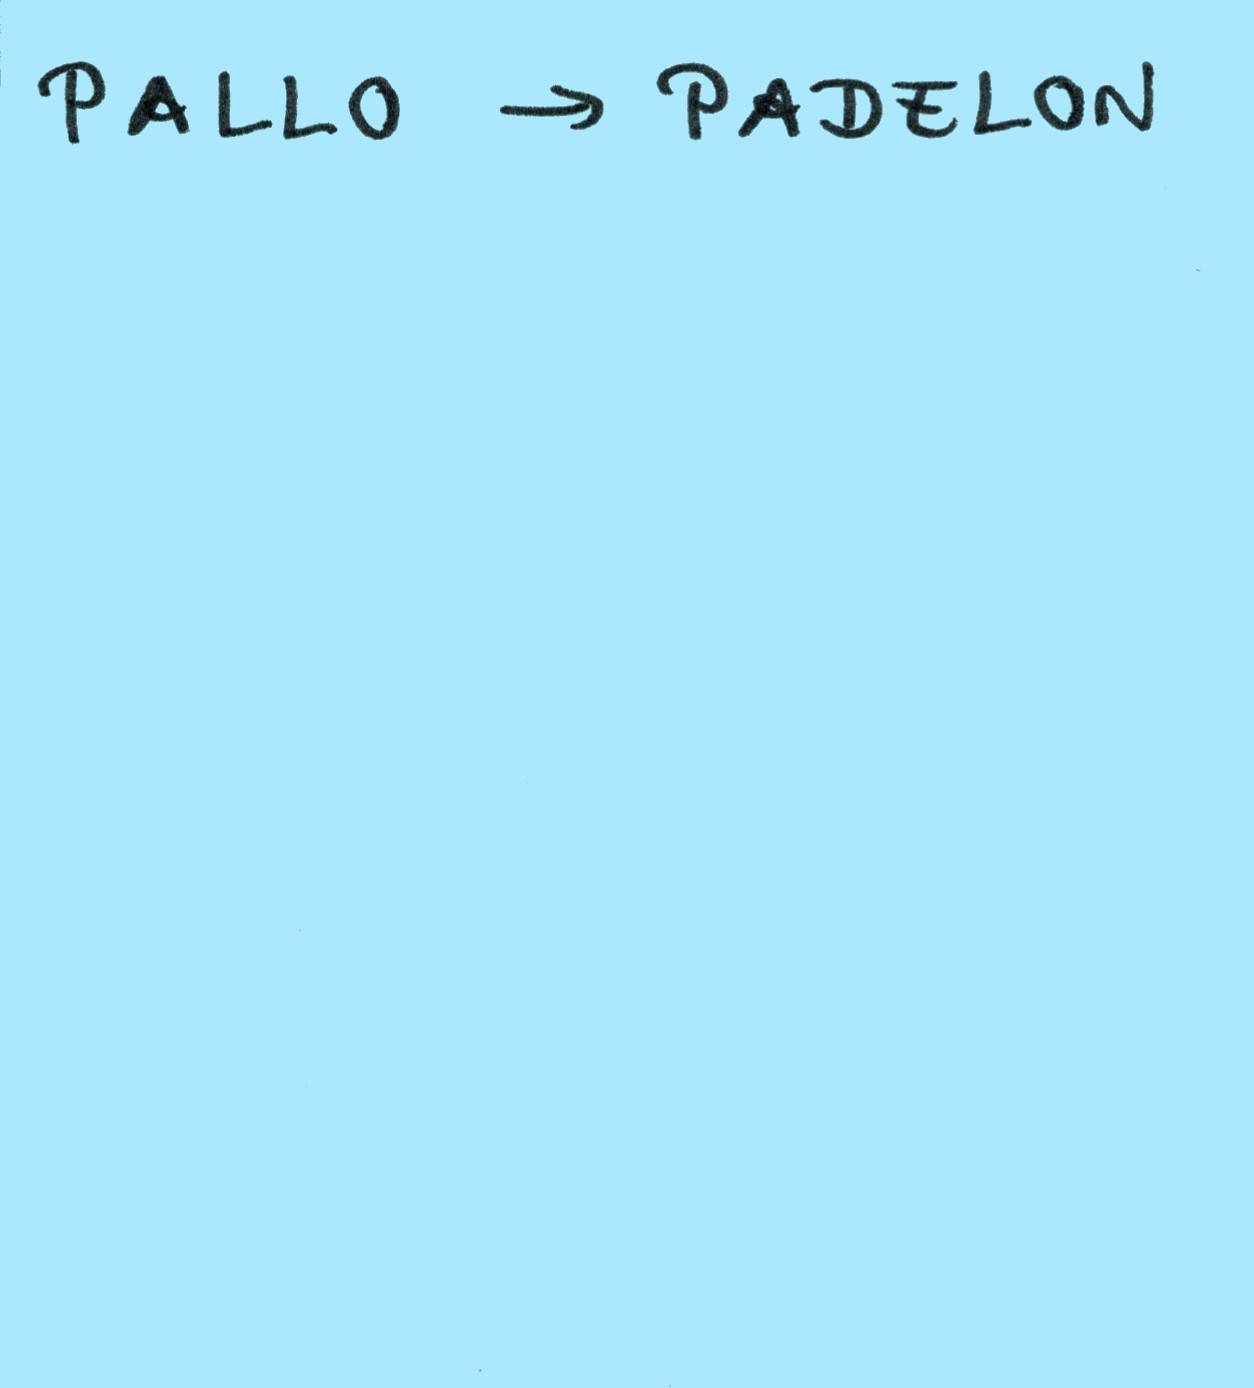 PALLO → PADELON